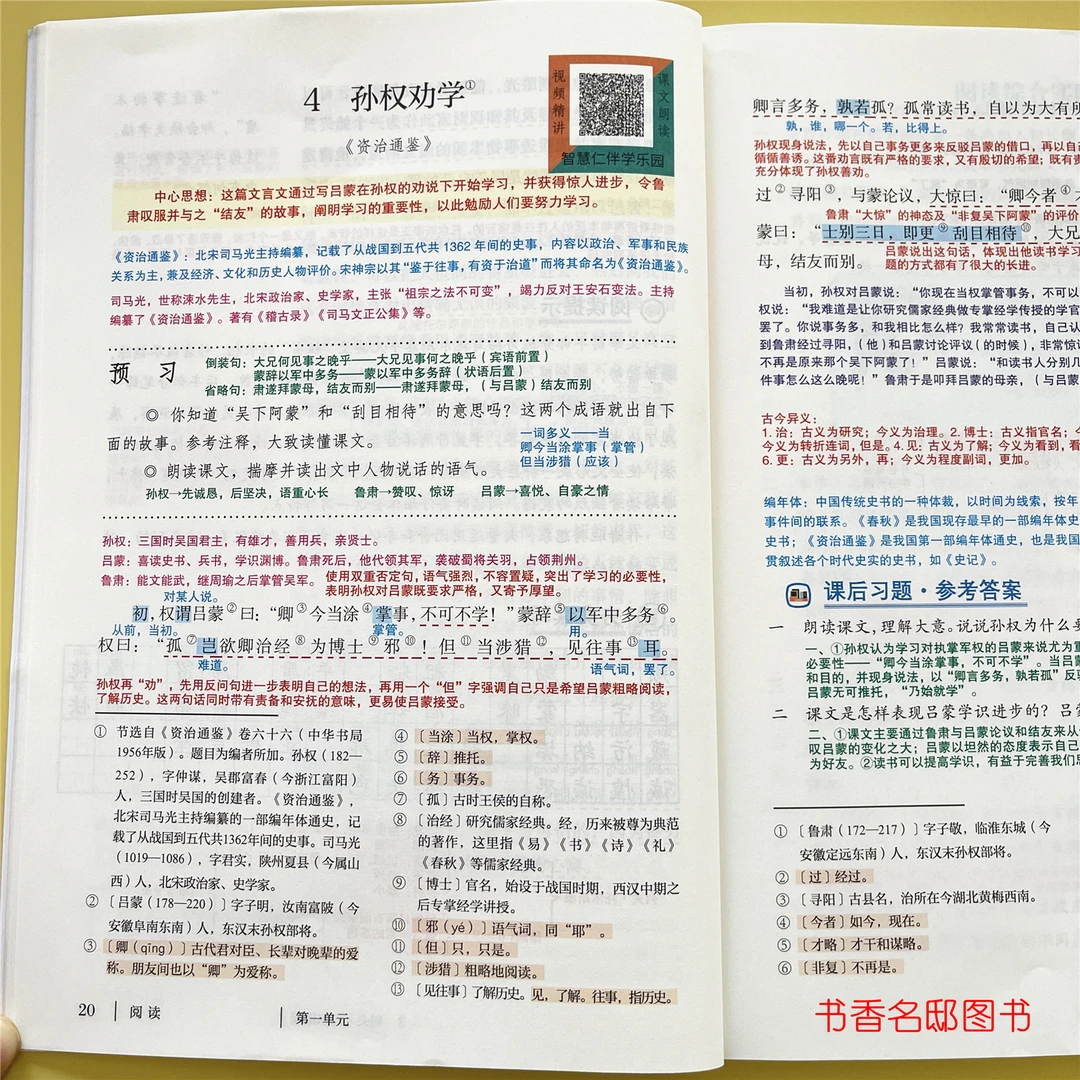 4 孙权劝学①
《资治通鉴》
视频精讲
课文朗读
智慧仁伴学乐园
中心思想：这篇文言文通过写吕蒙在孙权的劝说下开始学习，并获得惊人进步，令鲁
肃叹服并与之“结友”的故事，阐明学习的重要性，以此勉励人们要努力学习。
《资治通鉴》：北宋司马光主持编纂，记载了从战国到五代共1362年间的史事，内容以政治、军事和民族
关系为主，兼及经济、文化和历史人物评价。宋神宗以其“鉴于往事，有资于治道”而将其命名为《资治通鉴》。
司马光，世称涑水先生，北宋政治家、史学家，主张“祖宗之法不可变”，竭力反对王安石变法。主持
编纂了《资治通鉴》。著有《稽古录》《司马文正公集》等。
预 习
倒装句：大兄何见事之晚乎——大兄见事何之晚乎（宾语前置）
蒙辞以军中多务——蒙以军中多务辞（状语后置）
省略句：肃遂拜蒙母，结友而别——肃遂拜蒙母，（与吕蒙）结友而别
◎ 你知道“吴下阿蒙”和“刮目相待”的意思吗？这两个成语就出自下
面的故事。参考注释，大致读懂课文。
一词多义——当
卿今当涂掌事（掌管）
但当涉猎（应该）
◎ 朗读课文，揣摩并读出文中人物说话的语气。
孙权→先诚恳，后坚决，语重心长 鲁肃→赞叹、惊讶 吕蒙→喜悦、自豪之情
孙权：三国时吴国君主，有雄才，善用兵，亲贤士。
吕蒙：喜读史书、兵书，学识渊博。鲁肃死后，他代领其军，袭破蜀将关羽，占领荆州。
鲁肃：能文能武，继周瑜之后掌管吴军。
使用双重否定句，语气强烈，不容置疑，突出了学习的必要性，
表明孙权对吕蒙既要求严格，又寄予厚望。
对某人说。
初，权谓吕蒙②曰：“卿③今当涂④掌事，不可不学！”蒙辞⑤以军中多务⑥。
从前，当初。 掌管。 用。
权曰：“孤⑦岂欲卿治经⑧为博士⑨邪⑩！但⑪当涉猎⑫，见往事⑬耳。
难道。 语气词，罢了。
孙权再“劝”，先用反问句进一步表明自己的想法，再用一个“但”字强调自己只是希望吕蒙粗略阅读，
了解历史。这两句话同时带有责备和安抚的意味，更易使吕蒙接受。
① 节选自《资治通鉴》卷六十六（中华书局
1956年版）。题目为编者所加。孙权（182—
252），字仲谋，吴郡富春（今浙江富阳）
人，三国时吴国的创建者。《资治通鉴》，
北宋司马光主持编纂的一部编年体通史，记
载了从战国到五代共1362年间的史事。司马光
（1019—1086），字君实，陕州夏县（今属山
西）人，北宋政治家、史学家。
② 〔吕蒙（178—220）〕字子明，汝南富陂（今
安徽阜南东南）人，东汉末孙权部将。
③ 〔卿（qīng）〕古代君对臣、长辈对晚辈的爱
称。朋友间也以“卿”为爱称。
④ 〔当涂〕当权，掌权。
⑤ 〔辞〕推托。
⑥ 〔务〕事务。
⑦ 〔孤〕古时王侯的自称。
⑧ 〔治经〕研究儒家经典。经，历来被尊为典范
的著作，这里指《易》《书》《诗》《礼》
《春秋》等儒家经典。
⑨ 〔博士〕官名，始设于战国时期，西汉中期之
后专掌经学讲授。
⑩ 〔邪（yé）〕语气词，同“耶”。
⑪ 〔但〕只，只是。
⑫ 〔涉猎〕粗略地阅读。
⑬ 〔见往事〕了解历史。见，了解。往事，指历史。
20 阅读 第一单元
卿言多务，孰若孤？孤常读书，自以为大有所
孰，谁，哪一个。若，比得上。
孙权现身说法，先以自己事务更多来反驳吕蒙的借口，再以自己
循循善诱。这番劝言既有严格的要求，又有殷切的希望；既有责
充分体现了孙权善劝。
过②寻阳③，与蒙论议，大惊曰：“卿今者④
鲁肃“大惊”的神态及“非复吴下阿蒙”的评价
蒙曰：“士别三日，即更⑨刮目相待⑩，大兄
吕蒙说出这句话，体现出他读书学习
题的方式都有了很大的长进。
母，结友而别。
当初，孙权对吕蒙说：“你现在当权掌管事务，不可以
权说：“我难道是让你研究儒家经典做专掌经学传授的学官
罢了。你说事务多，和我相比怎么样？我常常读书，自己认
到鲁肃经过寻阳，（他）和吕蒙讨论评议（的时候），非常惊讶
不再是原来那个吴下阿蒙了！”吕蒙说：“和读书人分别几
件事怎么这么晚呢！”鲁肃于是叩拜吕蒙的母亲，（与吕蒙
古今异义：
1. 治：古义为研究；今义为治理。2. 博士：古义指官名；今
今义为转折连词，但是。4. 见：古义为了解；今义为看到，看
6. 更：古义为另外，再；今义为程度副词，更加。
编年体：中国传统史书的一种体裁，以时间为线索，按年
事件间的联系。《春秋》是我国现存最早的一部编年体史
史书；《资治通鉴》是我国第一部编年体通史，也是我国
贯叙述各个时代史实的史书，如《史记》。
课后习题·参考答案
一 朗读课文，理解大意。说说孙权为什么要
一、①孙权认为学习对执掌军权的吕蒙来说尤为重
必要性——“卿今当涂掌事，不可不学”。当吕蒙
和目的，并现身说法，以“卿言多务，孰若孤”反驳
吕蒙无可推托，“乃始就学”。
二 课文是怎样表现吕蒙学识进步的？吕蒙
二、①课文主要通过鲁肃与吕蒙论议和结友来从侧
叹吕蒙的变化之大；吕蒙以坦然的态度表示自己
为好友。②读书可以提高学识，有益于完善我们思
① 〔鲁肃（172—217）〕字子敬，临淮东城（今
安徽定远东南）人，东汉末孙权部将。
② 〔过〕经过。
③ 〔寻阳〕古县名，治所在今湖北黄梅西南。
④ 〔今者〕如今，现在。
⑤ 〔才略〕才干和谋略。
⑥ 〔非复〕不再是。
书香名邸图书